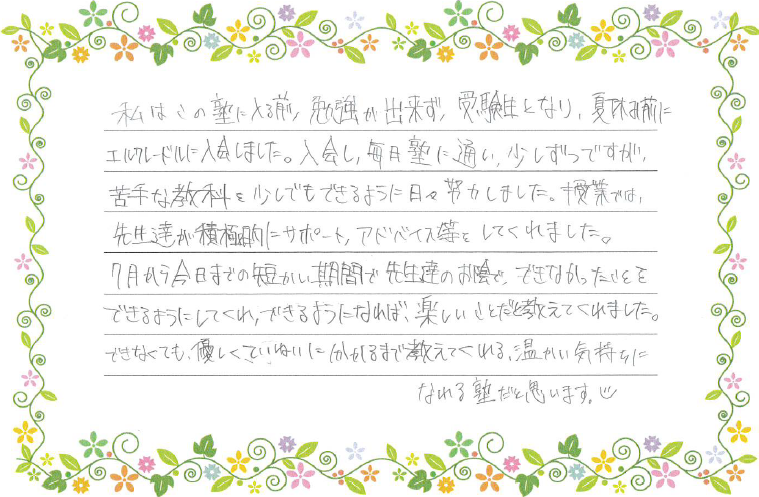 私はこの塾に入る前、勉強が出来ず、受験生となり、夏休み前に
エルクレードルに入会しました。入会し、毎日塾に通い、少しずつですが、
苦手な教科を少しでもできるように日々努力しました。授業では、
先生達が積極的にサポート、アドバイス等をしてくれました。
7月から今日までの短かい期間で先生達のお陰で、できなかったことを
できるようにしてくれ、できるようになれば、楽しいことだと教えてくれました。
できなくても、優しくていねいに分かるまで教えてくれる、温かい気持ちに
なれる塾だと思います。